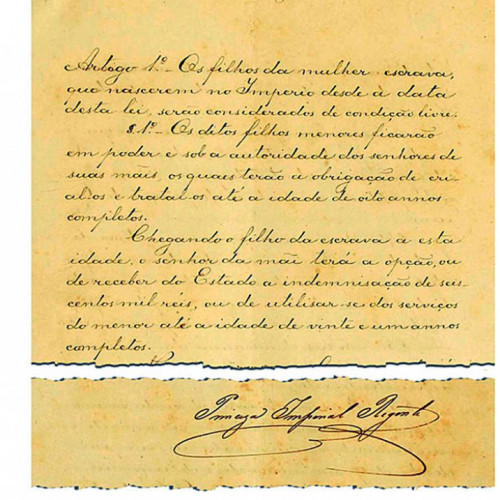 Artogo 1º_ Os filhos da mulher escrava,
que nascerem no Imperio desde a data
desta lei, serão considerados de condição livre.
§.1º_ Os detos filhos menores ficarão
em poder e sob a autoridade dos senhores de
suas mais, os quaes terão a obrigação de cri-
al-os e tratal-os até a idade de oito annos
completos.
Chegando o filho da escrava a esta
idade, o senhor da mãi terá a opção, ou
de receber do Estado a indemnisação de seis-
centos mil reis, ou de utilisar-se dos serviços
do menor até a idade de vinte e um annos
completos.
Princeza Imperial Regente